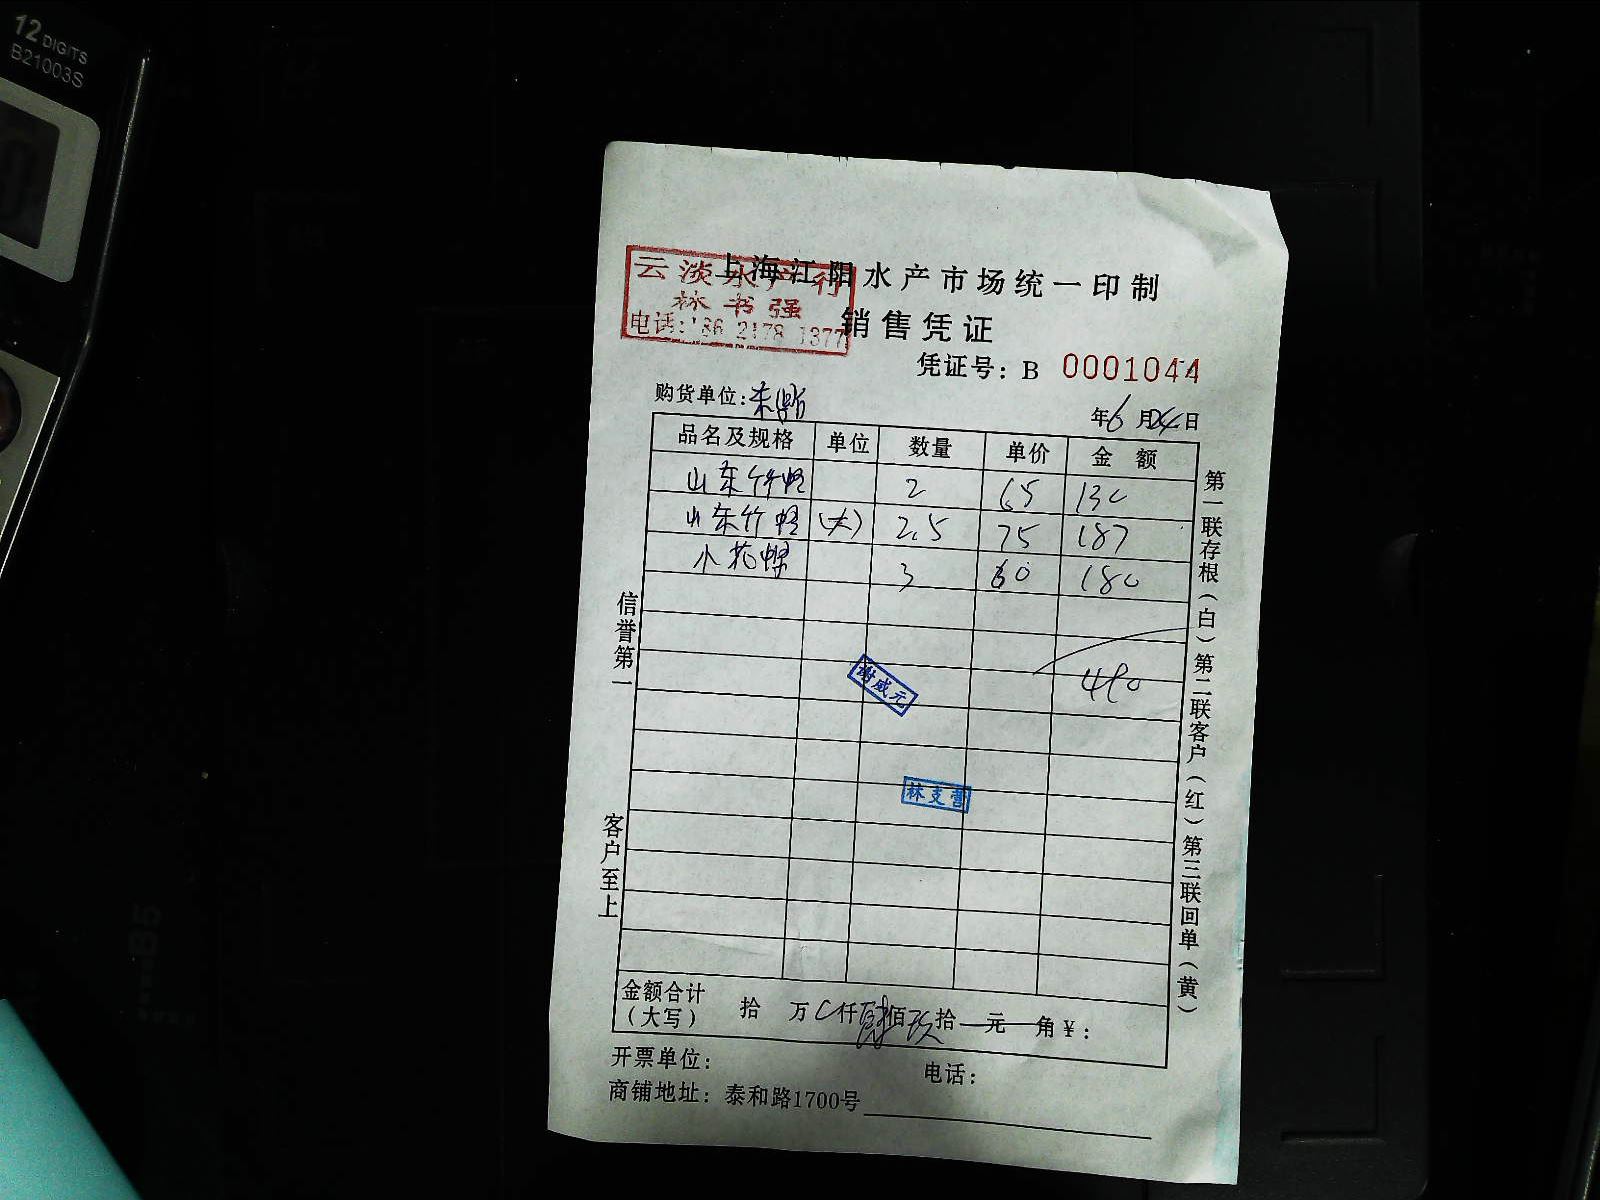 12 DIGITS
B21003S
上海江阳水产市场统一印制
云淡水产行
林书强
电话:186 2178 1377
销售凭证
凭证号: B 0001044
购货单位:东
年6月24日
品名及规格 单位 数量 单价 金 额
山东竹蛏 2 65 130
山东竹蛏 (大) 2.5 75 187
小花螺 3 60 180
490
谢咸元
林支营
信誉第一
客户至上
第一联存根(白)第二联客户(红)第三联回单(黄)
金额合计
(大写) 拾 万 仟肆佰玖拾 元 角 ¥:
开票单位: 电话:
商铺地址: 泰和路1700号